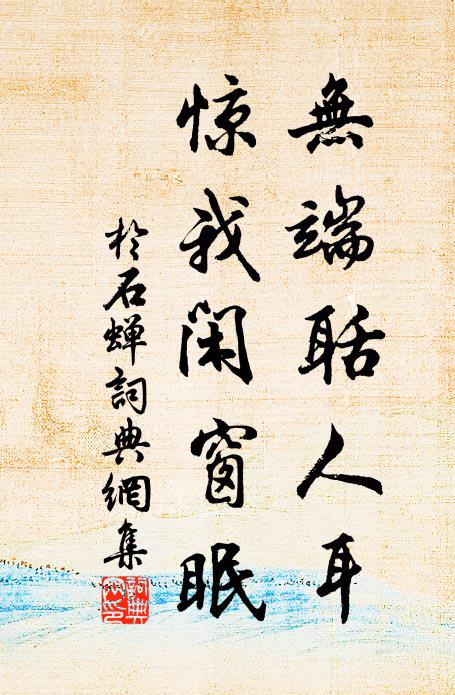 無端聒人耳
惊我闲窗眠
於石蟬詞典網集